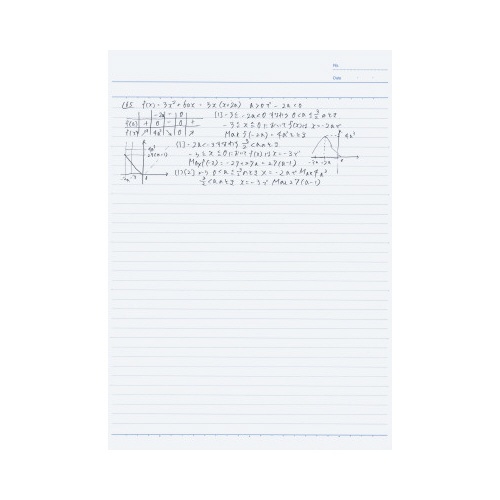 No.
Date
265 f(x) = 3x²+6ax = 3x(x+2a) a>0で -2a<0
-2a 0
f'(x) + 0 - 0 +
f(x) ↗ 4a³ ↘ 0 ↗
(1) -3≦-2a<0 すなわち 0<a≦3/2のとき
-3≦x≦0において f(x)は x=-2aで
Max f(-2a) = 4a³をとる
4a³
-3 -2a
(2) -2a<-3すなわち 3/2<aのとき
-3≦x≦0において f(x)は x=-3で
Max f(-3) = -27+27a = 27(a-1)
4a³
27(a-1)
-2a -3
(1)(2)から 0<a≦3/2のとき x=-2aで Max 4a³
3/2<aのとき x=-3で Max 27(a-1)